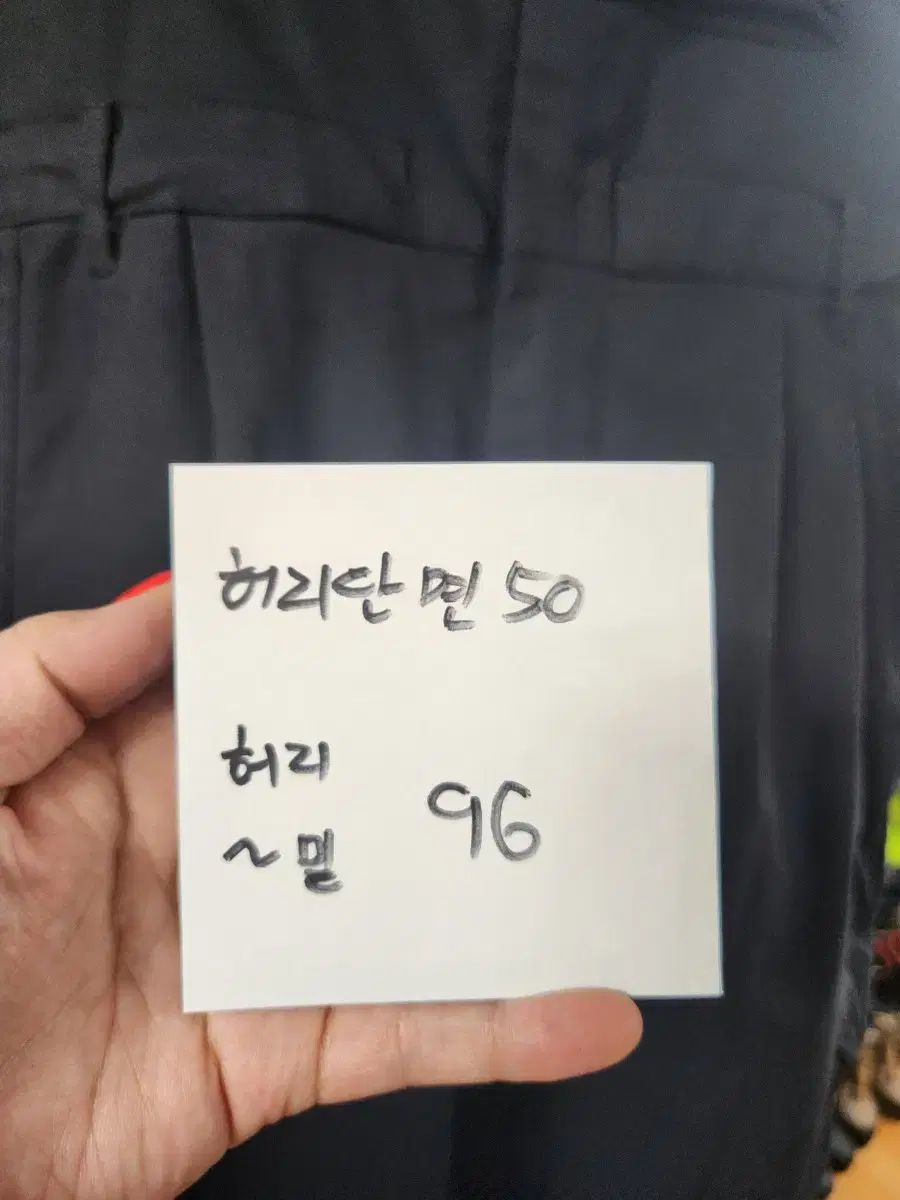 허리단면 50
허리
~밑 96